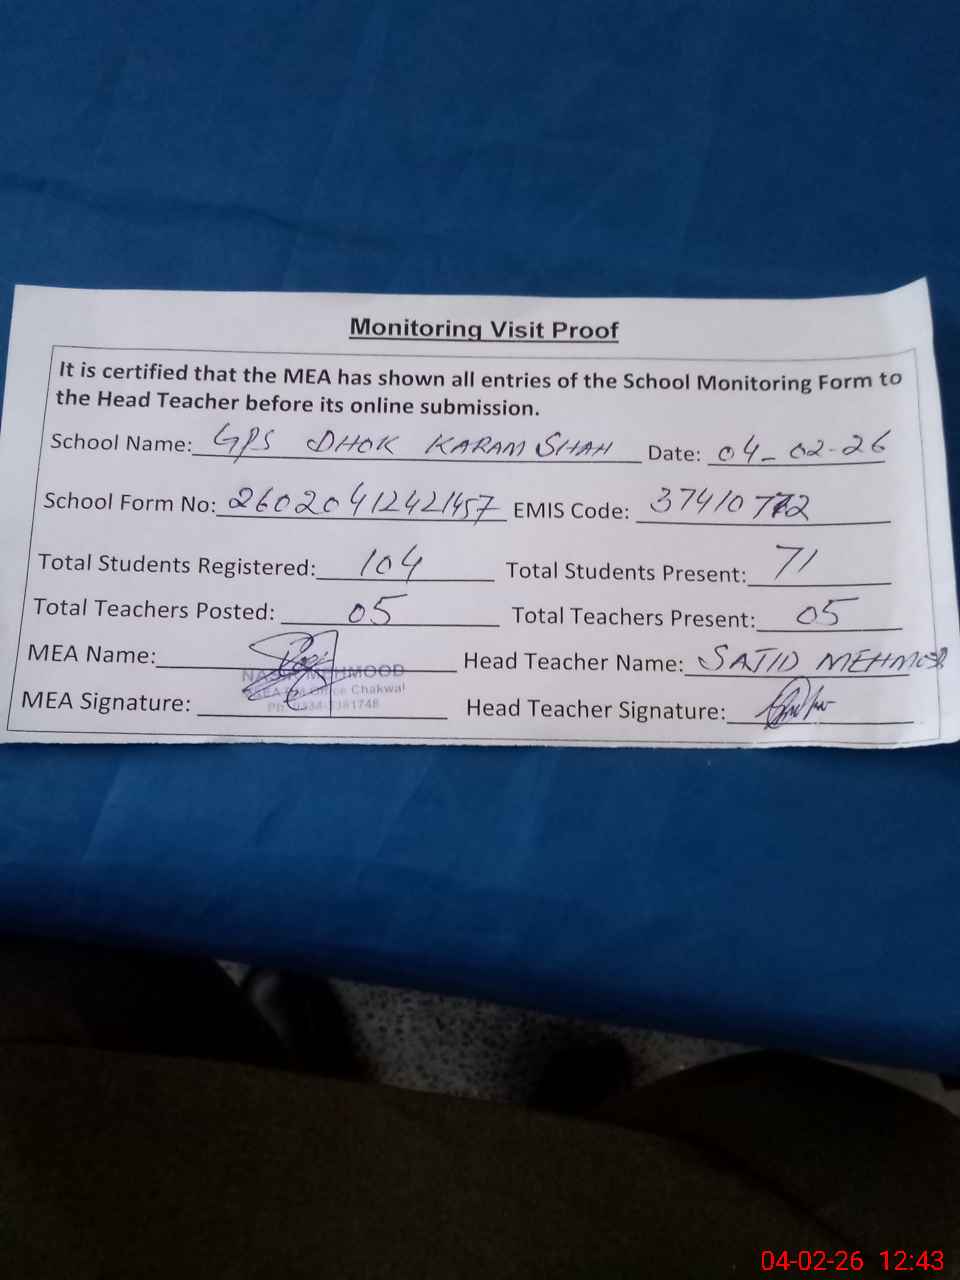 Monitoring Visit Proof
It is certified that the MEA has shown all entries of the School Monitoring Form to
the Head Teacher before its online submission.
School Name: GPS DHOK KARAM SHAH Date: 04-02-26
School Form No: 26020412421457 EMIS Code: 37410772
Total Students Registered: 104 Total Students Present: 71
Total Teachers Posted: 05 Total Teachers Present: 05
MEA Name: Head Teacher Name: SAJID MEHMOOD
MEHMOOD
Office Chakwal
MEA Signature: Head Teacher Signature:
04-02-26 12:43